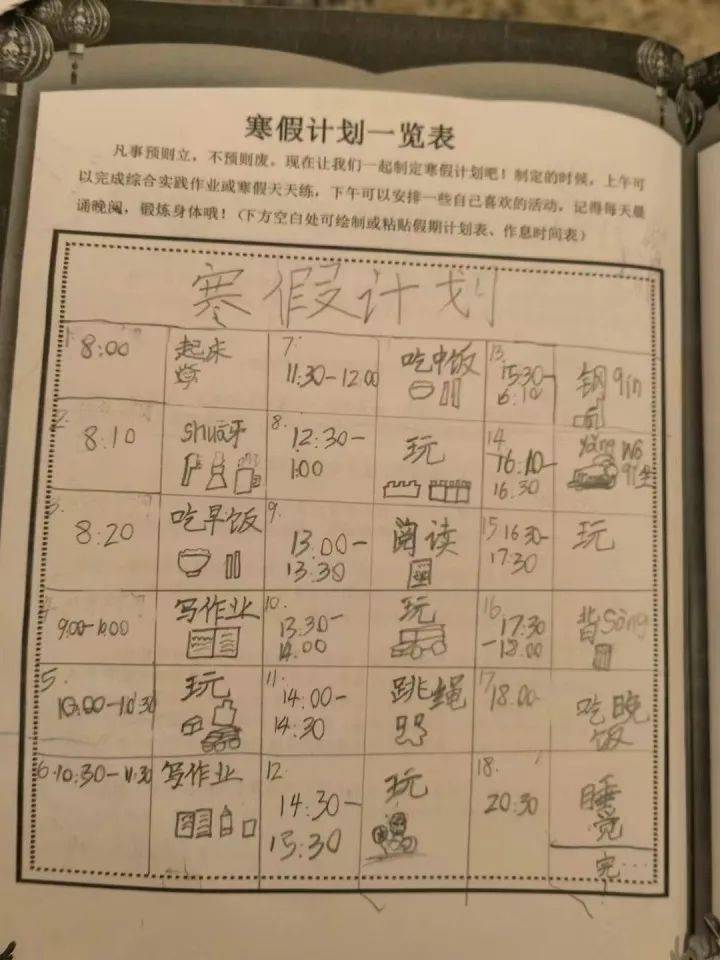 寒假计划一览表
凡事预则立，不预则废。现在让我们一起制定寒假计划吧！制定的时候，上午可
以完成综合实践作业或寒假天天练，下午可以安排一些自己喜欢的活动，记得每天晨
诵晚阅，锻炼身体哦！（下方空白处可绘制或粘贴假期计划表、作息时间表）
寒假计划
1 8:00
起床
2. 8:10
shua牙
3. 8:20
吃早饭
9:00-10:00
写作业
5. 10:00-10:30
玩
6. 10:30-11:30
写作业
7. 11:30-12:00
吃中饭
8. 12:30-
1:00
玩
9. 13:00-
13:30
阅读
10. 13:30-
14:00
玩
11. 14:00-
14:30
跳绳
12. 14:30-
15:30
玩
13. 15:30-
16:10
钢qin
14. 16:10-
16:30
15 16:30-
17:30
玩
16. 17:30
-18:00
背Sòng
17 18:00
吃晚
饭
18. 20:30
睡
觉
完